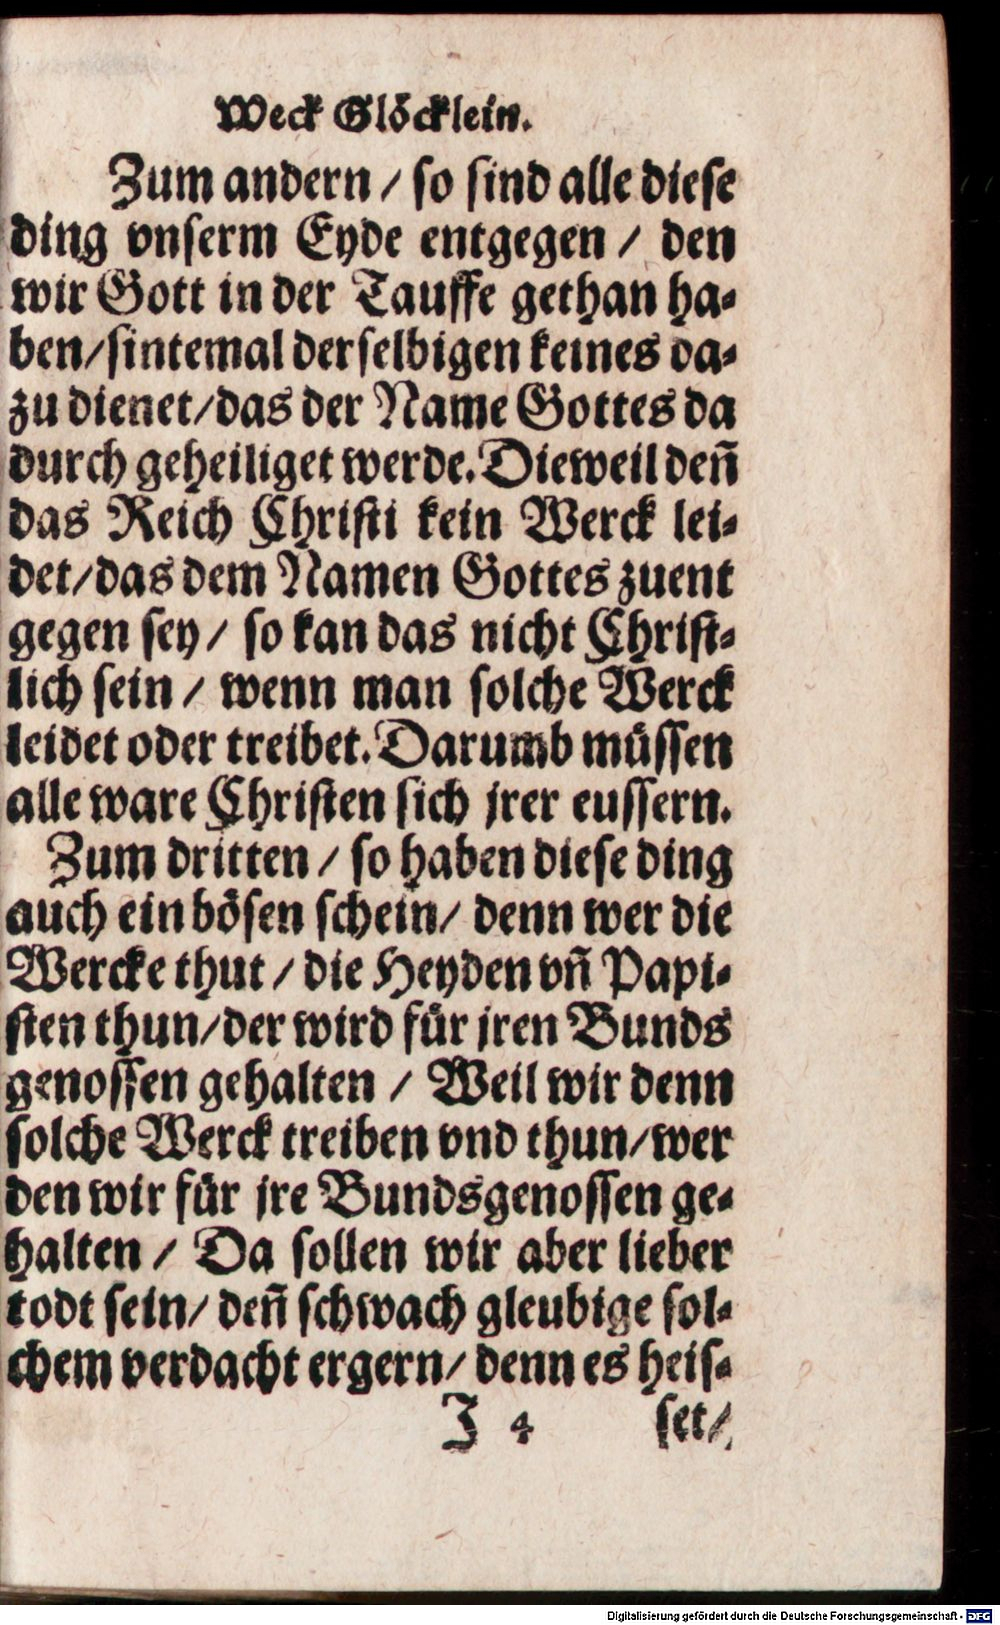 Weck Glöcklein.
Zum andern / so sind alle diese
ding vnserm Eyde entgegen / den
wir Gott in der Tauffe gethan ha-
ben/sintemal derselbigen keines da-
zu dienet/das der Name Gottes da
durch geheiliget werde. Dieweil deñ
das Reich Christi kein Werck lei-
det/das dem Namen Gottes zuent
gegen sey / so kan das nicht Christ-
lich sein / wenn man solche Werck
leidet oder treibet. Darumb müssen
alle ware Christen sich jrer eussern.
Zum dritten / so haben diese ding
auch ein bösen schein/ denn wer die
Wercke thut / die Heyden vñ Papi-
sten thun/der wird für jren Bunds
genossen gehalten / Weil wir denn
solche Werck treiben vnd thun/wer
den wir für jre Bundsgenossen ge-
halten / Da sollen wir aber lieber
todt sein/ deñ schwach gleubige sol-
chem verdacht ergern/ denn es heis-
J 4 set/
Digitalisierung gefördert durch die Deutsche Forschungsgemeinschaft - DFG